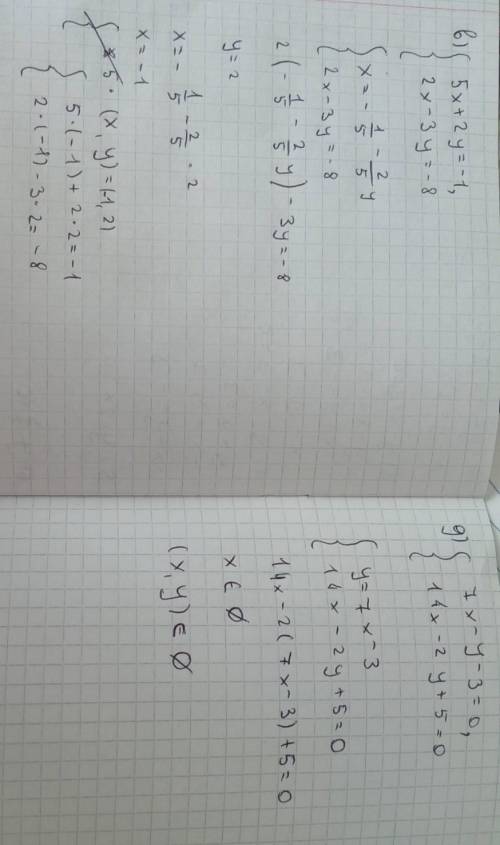 в) { 5x+2y=-1,
{ 2x-3y=-8
{ x=-1/5-2/5y
{ 2x-3y=-8
2(-1/5-2/5y)-3y=-8
y=2
x=-1/5-2/5·2
x=-1
(x,y)=(-1,2)
{ 5·(-1)+2·2=-1
{ 2·(-1)-3·2=-8
g) { 7x-y-3=0,
{ 14x-2y+5=0
{ y=7x-3
{ 14x-2y+5=0
14x-2(7x-3)+5=0
x∈∅
(x,y)∈∅